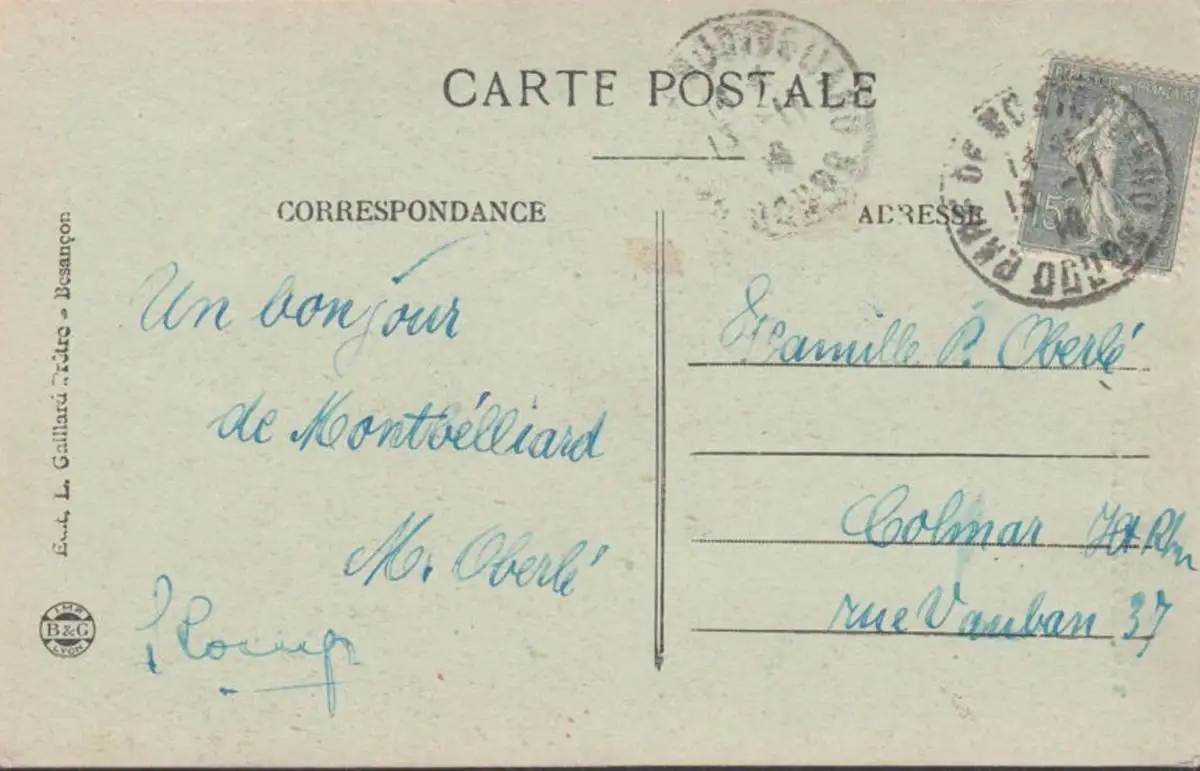 CARTE POSTALE
CORRESPONDANCE
Un bonjour
de Montbélliard
M. Oberlé
ADRESSE
Famille P. Oberlé
Colmar Ht Rhin
rue Vauban 37
Edit. L. Gaillard-Prêtre - Besançon
IMP.
B & G
LYON
GARE DE
DOUBS
15c